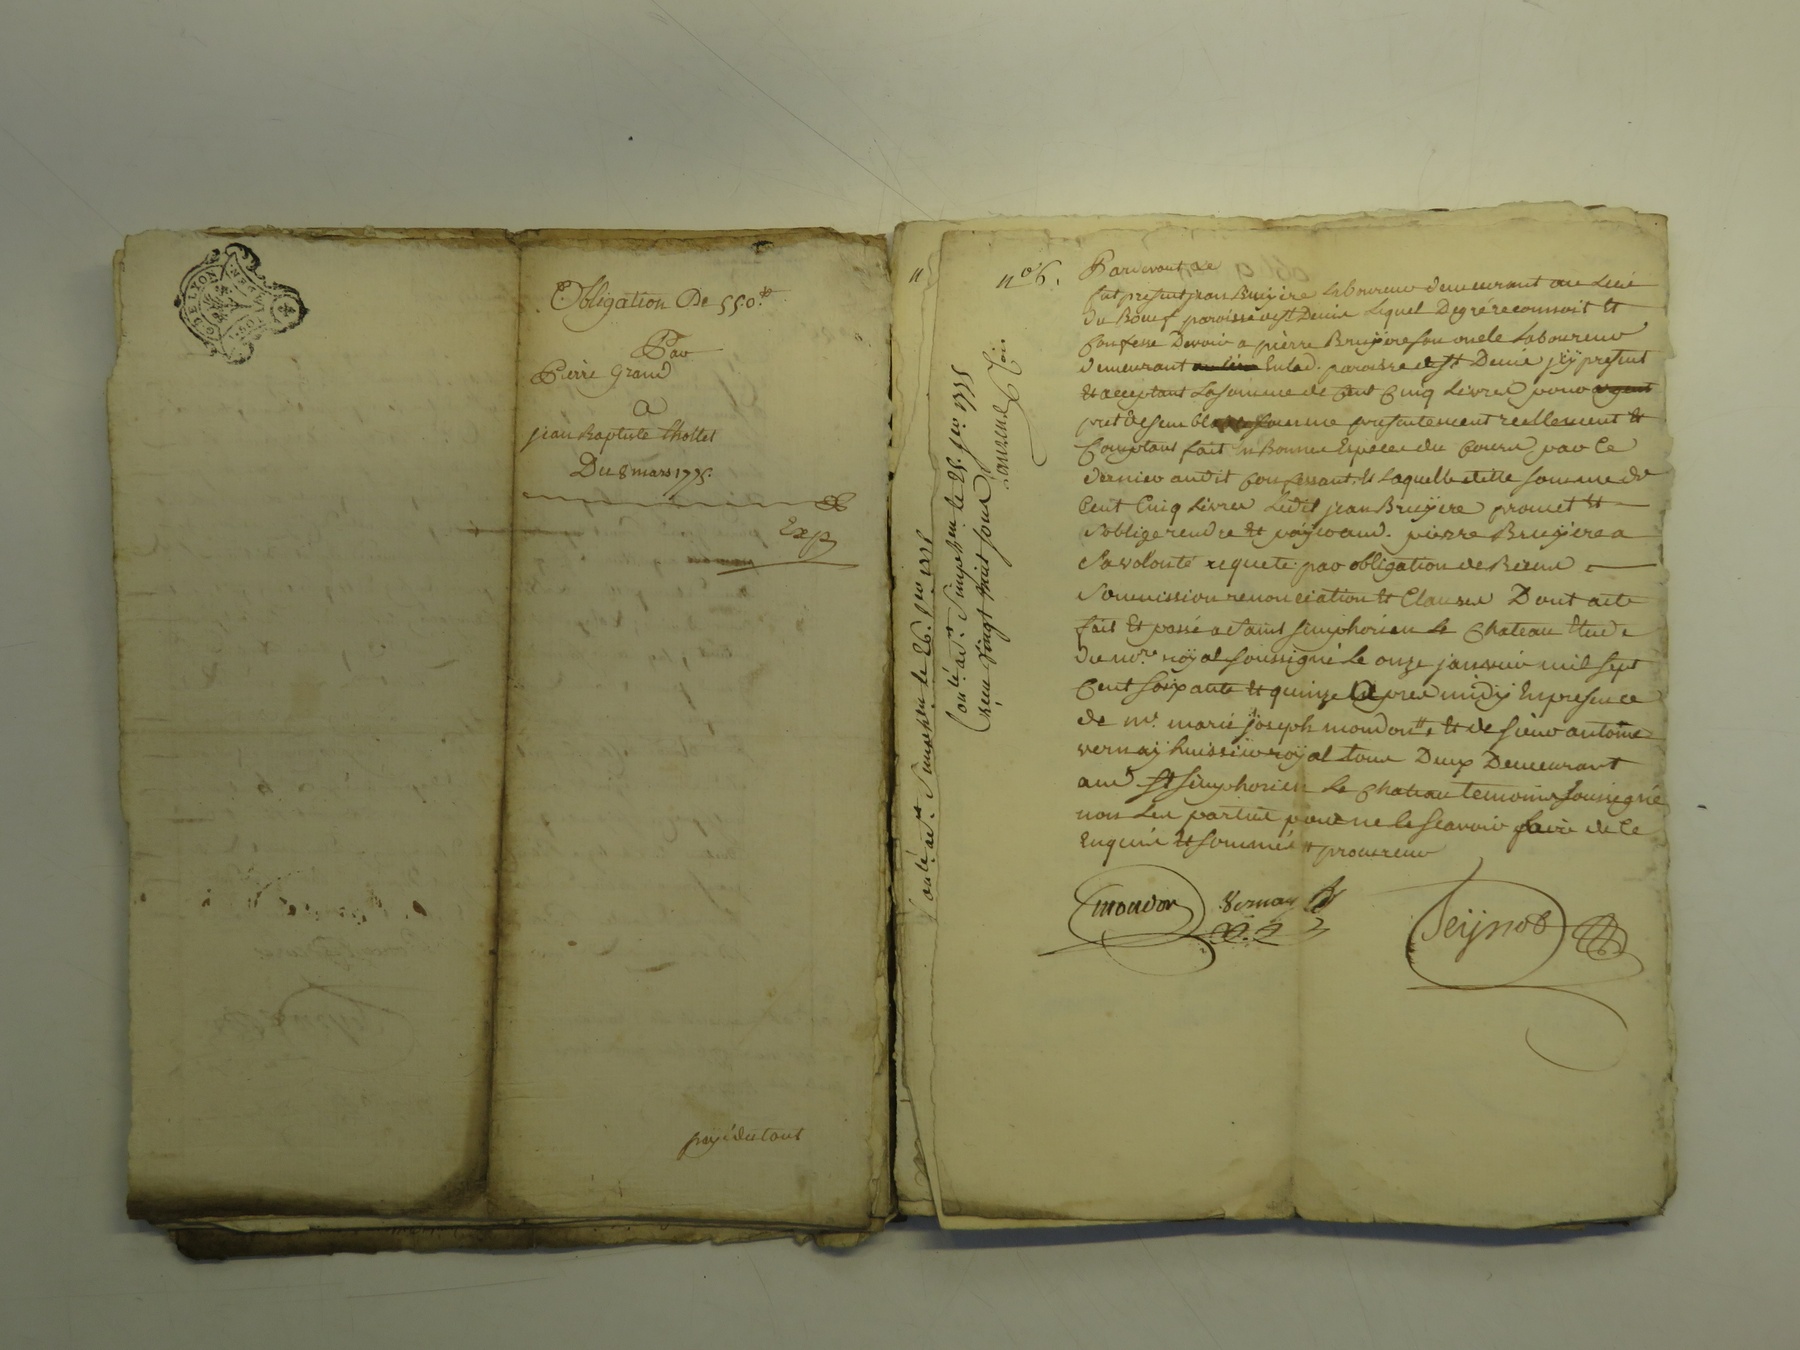 GEN DE LYON
Obligation De 550.lt
Par
Pierre Grand
a
jean Baptiste Thollet
Du 8 mars 1775.
Exp
payé du tout
n° 6.
Controllé a St. Simphorien le 25. jer 1775
Reçu vingt huit sous
Pardevant &e
fut present jean Bruyere Laboureur demeurant au Lieu
du Boeuf paroisse de st Denis Lequel Degré reconnoit Et
Confesse Devoir a pierre Bruÿere son oncle Laboureur
demeurant au lieu Enlad. paroisse de st Denis jcÿ present
Et acceptant La somme de Cent Cinq Livres pour argent
pret de semblable somme presentement reellement Et
Comptant fait En Bonnes Especes du Cours par Ce
dernier audit Confessant, Laquelle ditte somme de
Cent Cinq Livres Ledit jean Bruÿere promet Et
s'oblige rendre Et paÿer aud. pierre Bruÿere a
sa volonté requete par obligation de Biens
soumission renonciation Et Clauses Dont acte
fait Et passé a saint simphorien Le Chateau Etude
du nore roÿal soussigné Le onze janvier mil sept
Cent soixante Et quinze apres midÿ En presence
de mr. marie joseph mondon Et de sieur antoine
vernaÿ huissier roÿal tous Deux Demeurant
aud st simphorien Le Chateau temoins soussignés
non Les parties pour ne le scavoir faire de Ce
Enquis Et sommés Et procureur
mondon Vernay
Seÿnob